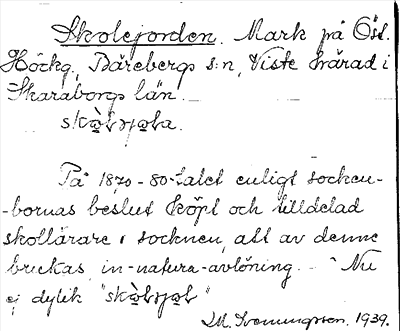 Skolejorden. Mark på Öst.
Höckg, Bärebergs s:n, Viste härad i
Skaraborgs län.
På 1870-80-talet enligt socken-
-bornas beslut köpt och tilldelad
skollärare i socknen, att av denne
bruckas in-natura-avlöning. - Nu
ej dylik
M. 1939.